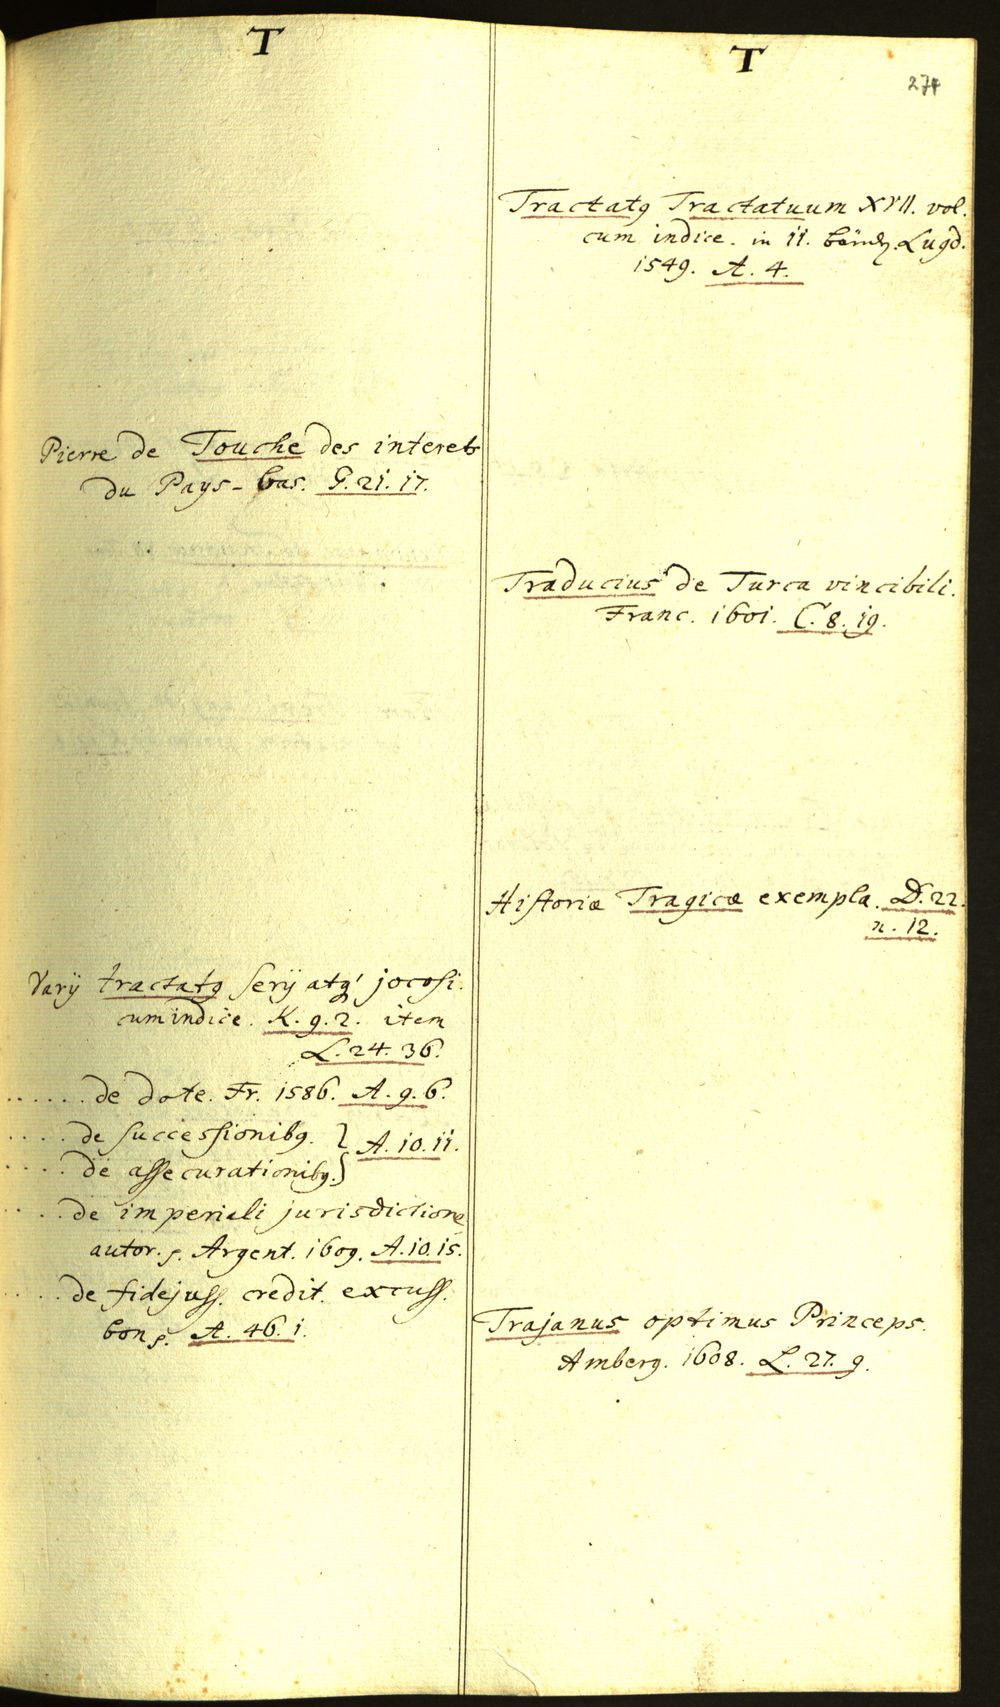 T
Pierre de Touche des interets
du Pays-bas. G. 21. 17.
Varij tractatq serij atq' jocosi.
cum indice. K. 9. 2. item
L. 24. 36.
...... de dote. Fr. 1586. A. 9. 6.
..... de successionibq. } A. 10. 11.
.... de assecurationibq. }
.... de imperiali jurisdictione
autor. s. Argent. 1609. A. 10. 15.
.... de fidejuss. credit. excuss.
bon s. A. 46. 1.
T
274
Tractatq Tractatuum XVII. vol.
cum indice. in 11. Lugd.
1549. A. 4.
Traducius de Turca vincibili.
Franc. 1601. C. 8. 19.
Historiæ Tragicæ exempla. D. 22.
n. 12.
Trajanus optimus Princeps.
Amberg. 1608. L. 27. 9.